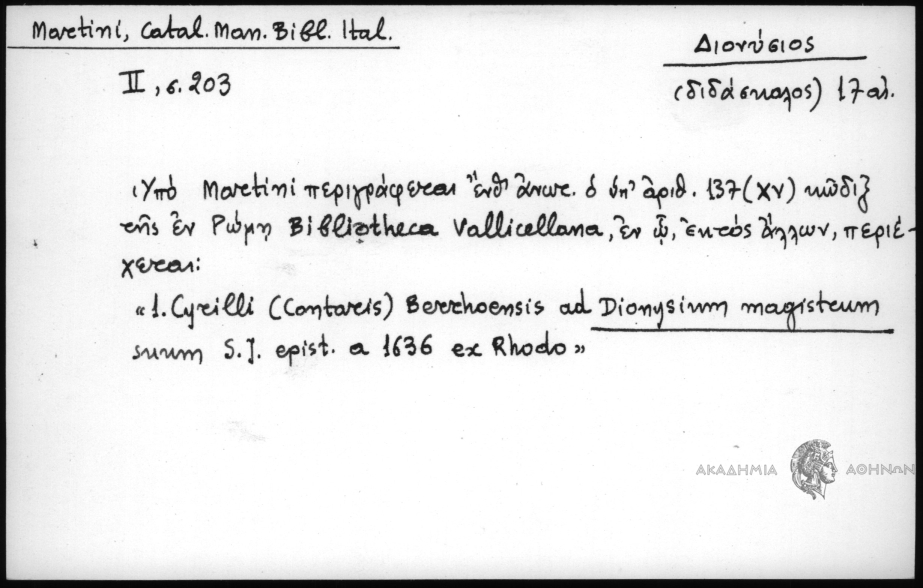 Martini, Catal. Man. Bibl. Ital.
II, σ. 203
Διονύσιος
(διδάσκαλος) 17 αι.
Ὑπό Martini περιγράφεται ἔνθ' ἄνωτ. ὁ ὑπ' ἀριθ. 137 (XV) κῶδιξ
τῆς ἐν Ρώμῃ Bibliotheca Vallicellana, ἐν ᾧ, ἐκτός ἄλλων, περιέ-
χεται:
«1. Cyrilli (Contaris) Berrhoensis ad Dionysium magistrum
suum S.J. epist. a 1636 ex Rhodo»
ΑΚΑΔΗΜΙΑ ΑΘΗΝΩΝ